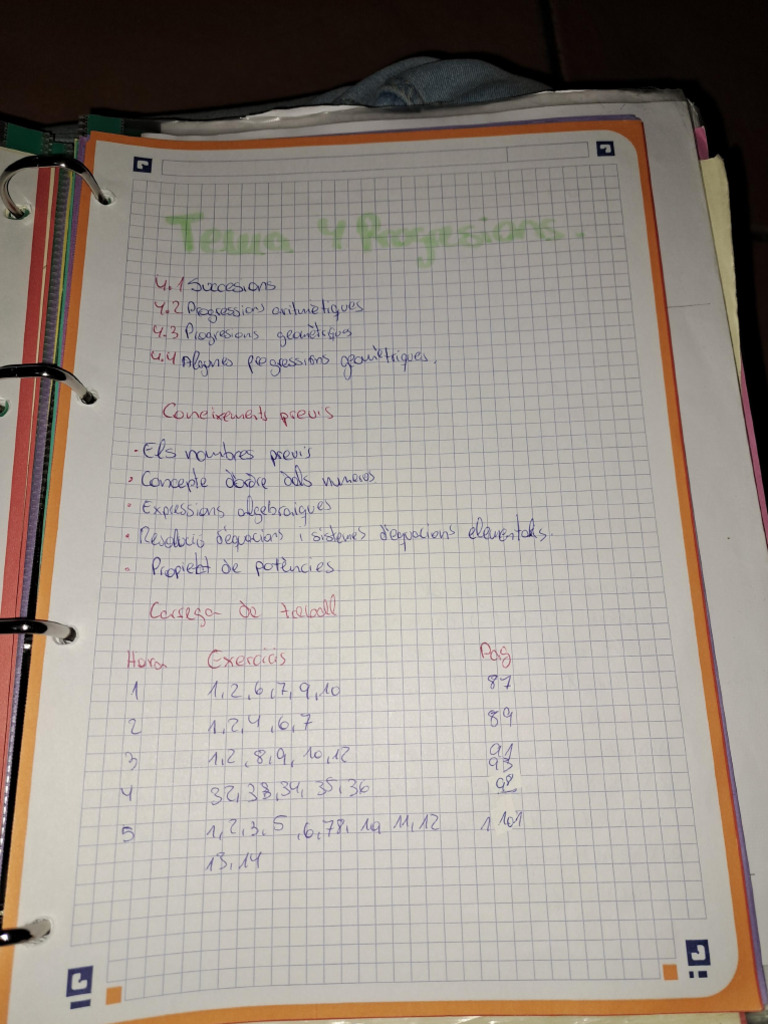 Tema 4 Progesions.
4.1 Succesions
4.2 Progressions aritmètiques
4.3 Progresions geomètriques
4.4 Algunes progressions geomètriques.
Coneixements previs
· Els nombres previs
· Concepte d'ordre dels numeros
· Expressions algebraiques
· Resolució d'equacions i sistemes d'equacions elementals.
· Propietat de potències.
Carrega de treball
Hora Exercicis Pag
1 1, 2, 6, 7, 9, 10 87
2 1, 2, 4, 6, 7 89
3 1, 2, 8, 9, 10, 12 91
93
4 32, 33, 34, 35, 36 98
5 1, 2, 3, 5, 6, 78, 10 11, 12 101
13, 14